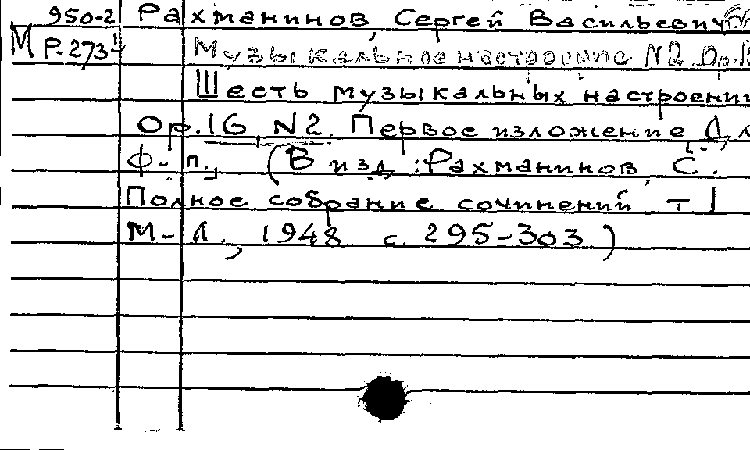 950-2 Рахманинов, Сергей Васильевич
М Р.273 Музыкальное настроение N2. Ор.16
Шесть музыкальных настроений
Ор.16, N2. Первое изложение Для
Ф-п., (В изд.: Рахманинов, С.
Полное собрание сочинений т 1
М-Л., 1948 с. 295-303)